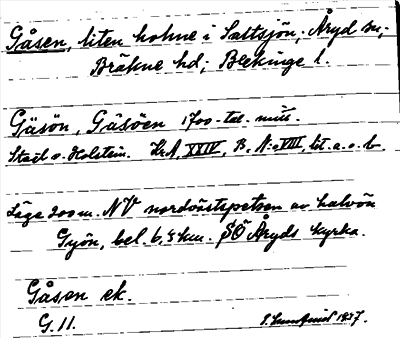 Gåsen, liten holme i Saltsjön, Åryd sn;
Bräkne hd; Blekinge l.
Gåsön, Gåsöen 1700-tal. mitt.
Stael v. Holstein. KrA, XXIV, B, N:o VIII, lit. a. o. b.
Läge 200 m. NV nordvästspetsen av halvön
Gyön, bel. 6,5 km. SÖ Åryds kyrka.
Gåsen ek.
G. 11.
1937.